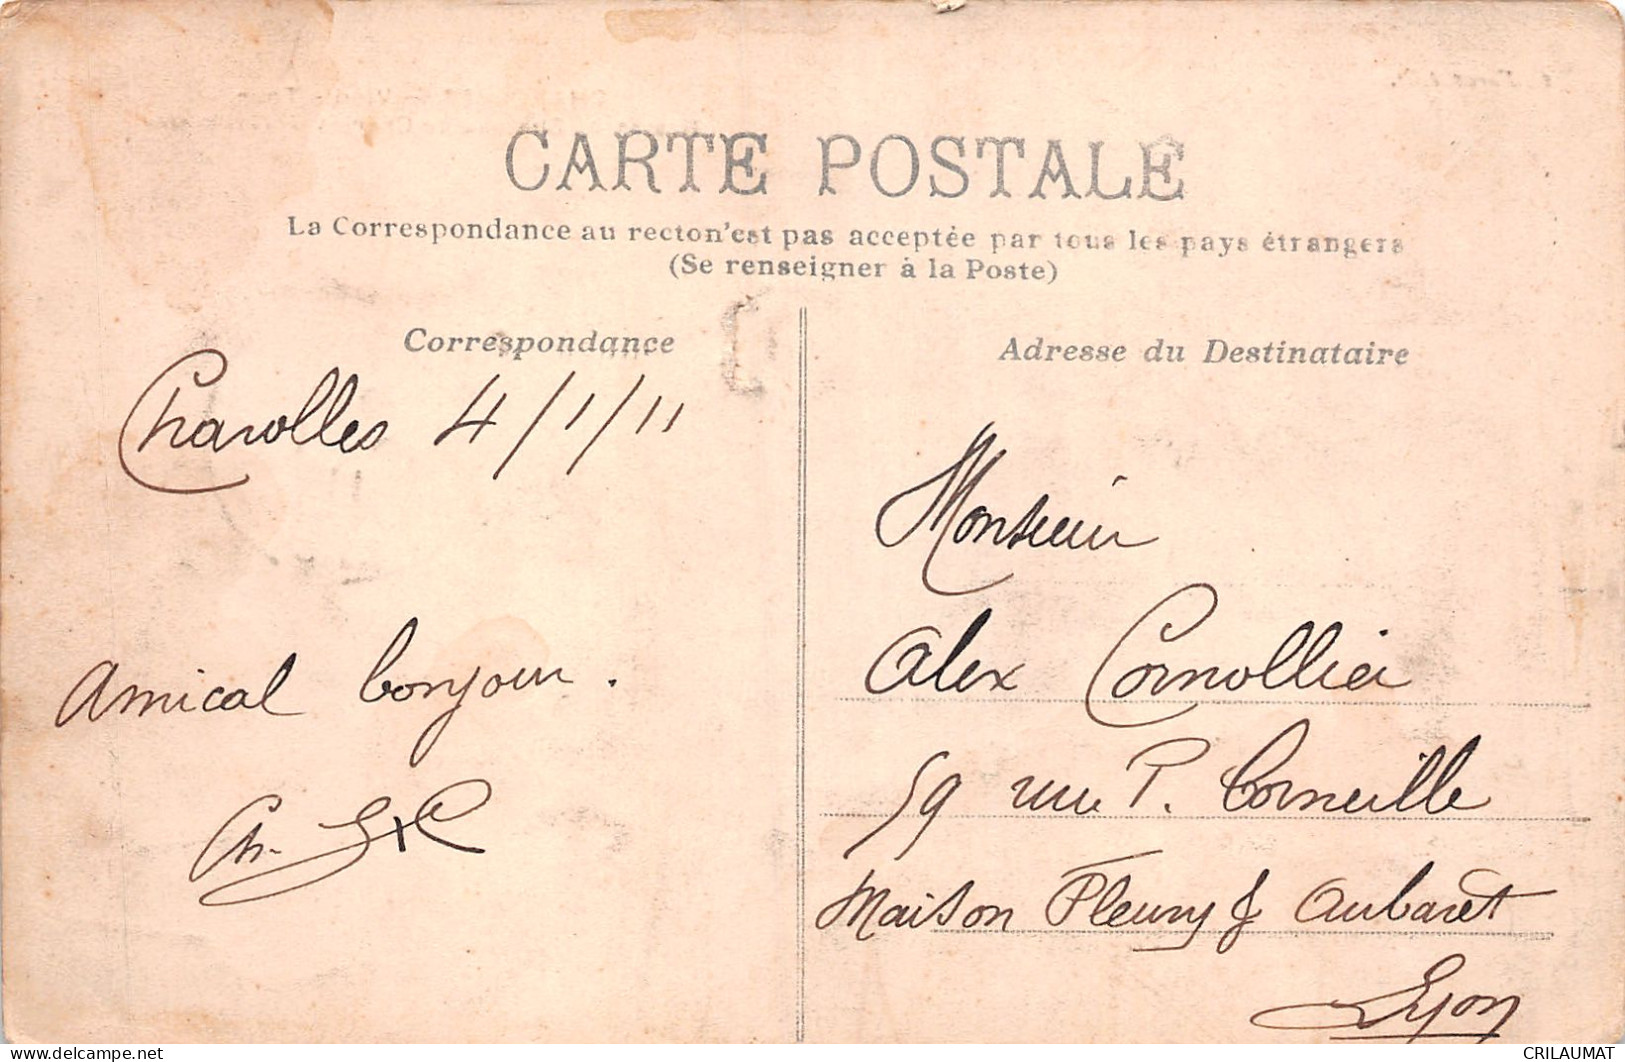 CARTE POSTALE
La Correspondance au recto n'est pas acceptée par tous les pays étrangers
(Se renseigner à la Poste)
Correspondance
Charolles 4/1/11
Amical bonjour.
Ch.
Adresse du Destinataire
Monsieur
Alex Cornollier
59 rue P. Corneille
Maison Fleury & Aubaret
Lyon
www.delcampe.net
CRILAUMAT